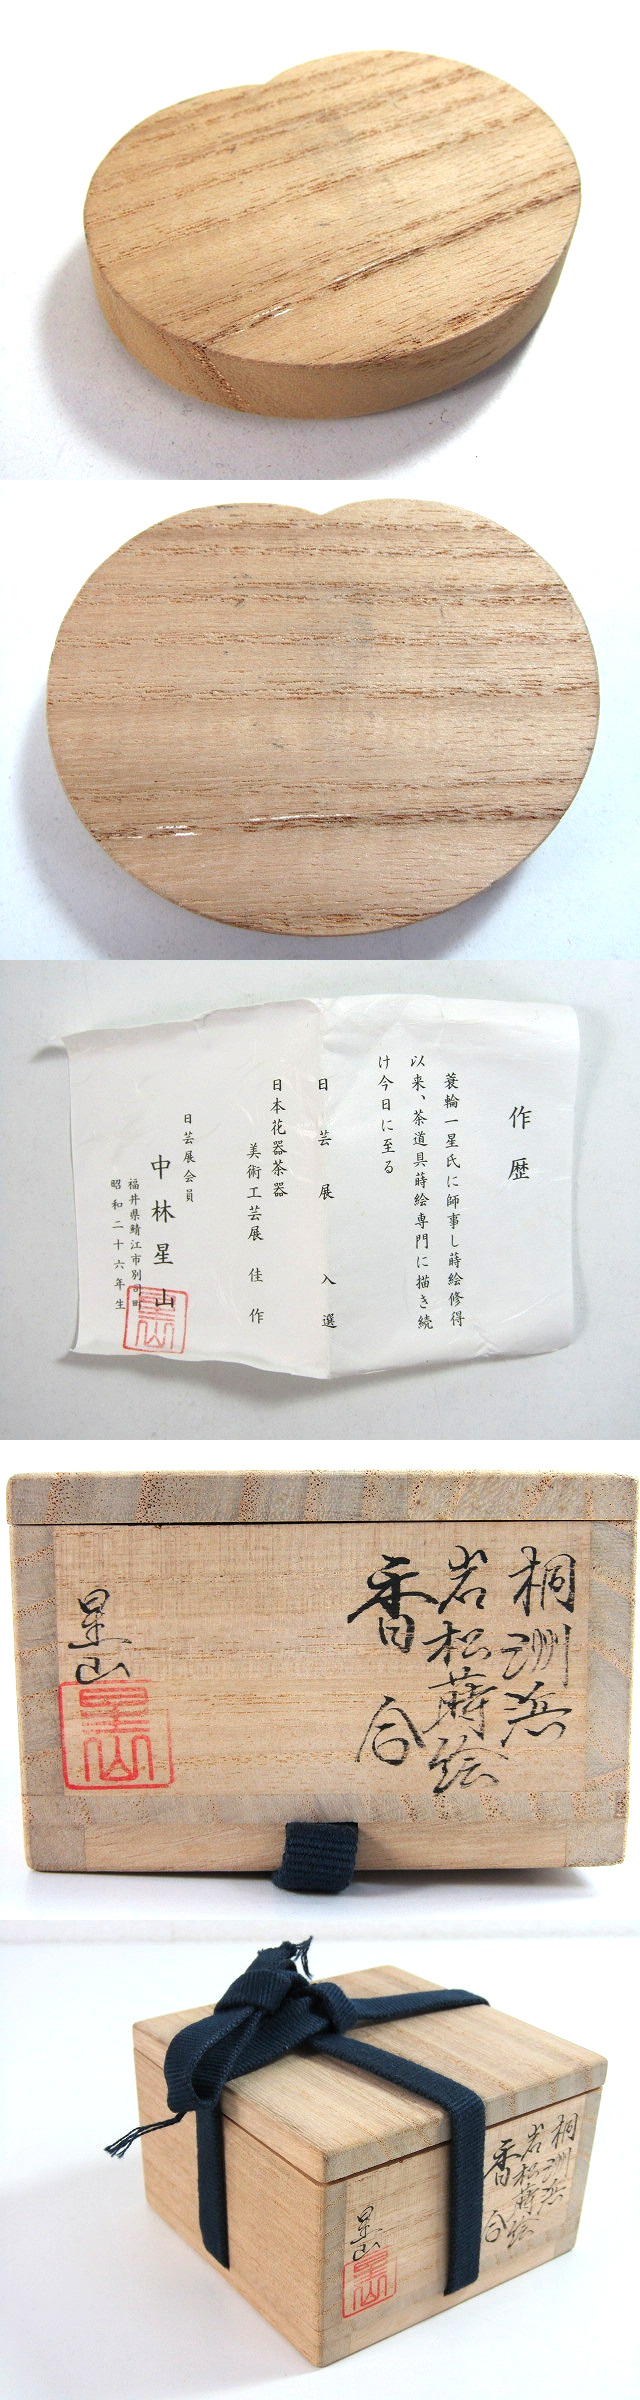 作歴
蓑輪一星氏に師事し蒔絵修得
以来、茶道具蒔絵専門に描き続
け今日に至る
日芸展 入選
日本花器茶器
美術工芸展 佳作
日芸展会員
中林星山
福井県鯖江市別司町
昭和二十六年生
星山
桐洲浜
岩松蒔絵
香合
星山
星山
桐洲浜
岩松蒔絵
香合
星山
星山